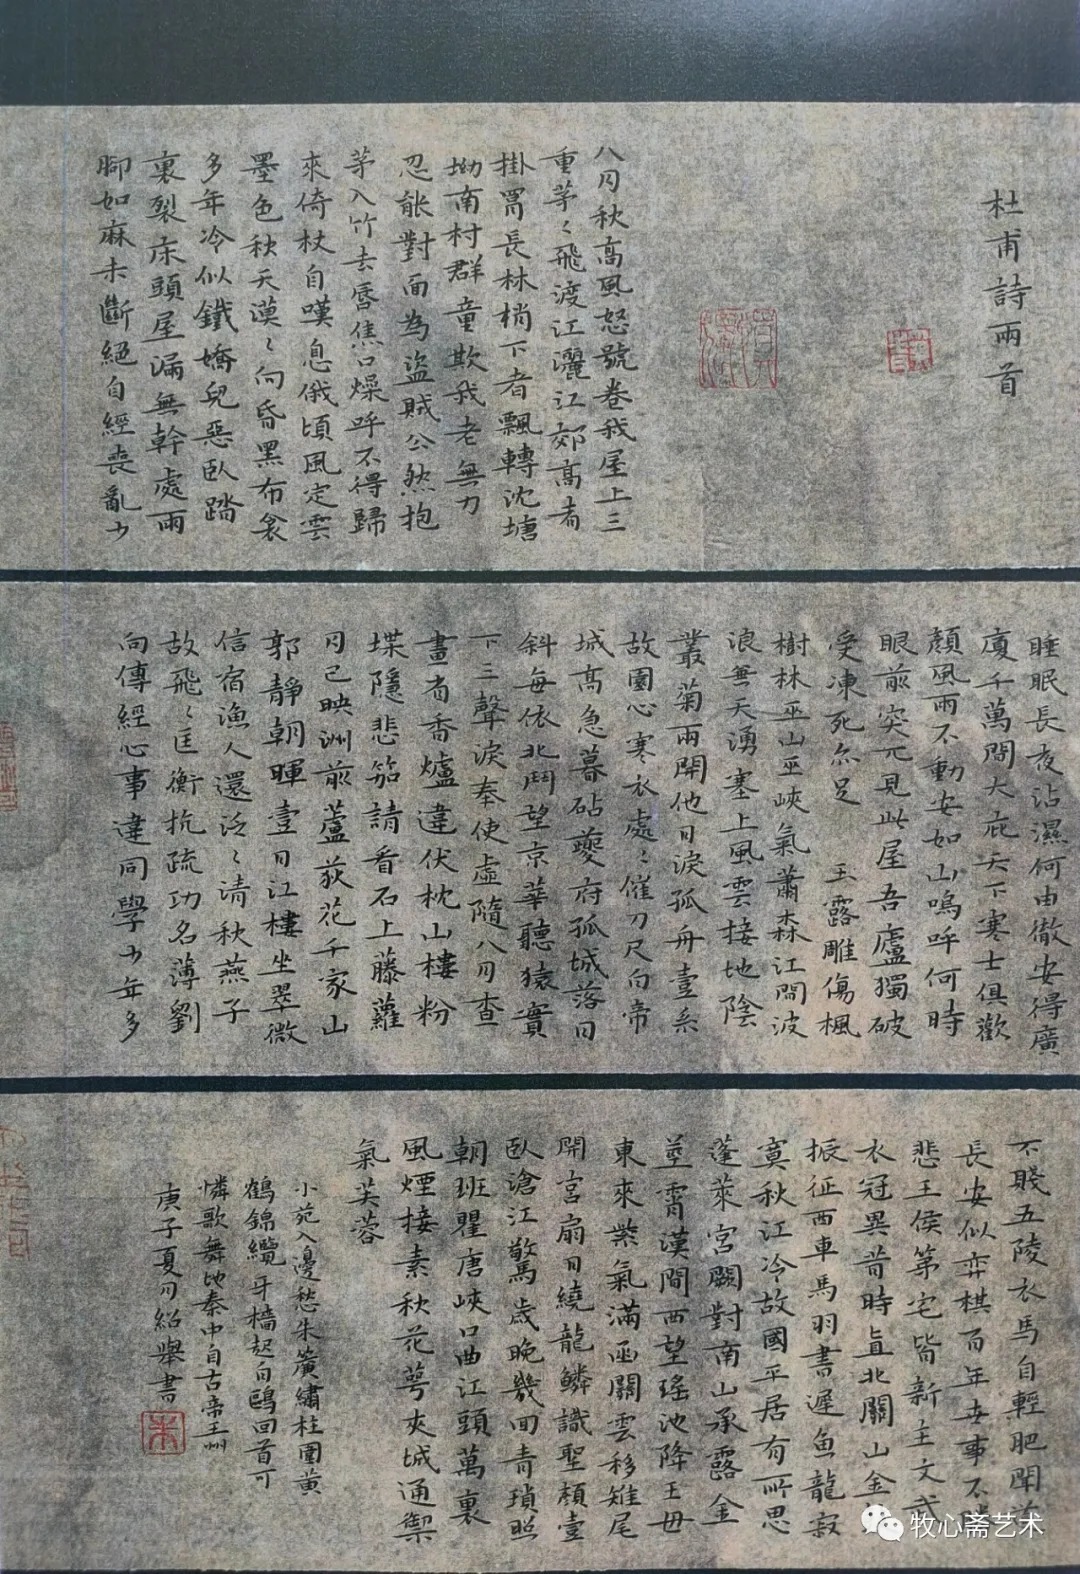 杜甫詩兩首
八月秋高風怒號卷我屋上三
重茅〻飛渡江灑江郊高者
掛罥長林梢下者飄轉沈塘
坳南村群童欺我老無力
忍能對面為盜賊公然抱
茅入竹去唇焦口燥呼不得歸
來倚杖自嘆息俄頃風定雲
墨色秋天漠〻向昏黑布衾
多年冷似鐵嬌兒惡臥踏
裏裂床頭屋漏無幹處雨
腳如麻未斷絕自經喪亂少
睡眠長夜沾濕何由徹安得廣
廈千萬間大庇天下寒士俱歡
顏風雨不動安如山嗚呼何時
眼前突兀見此屋吾廬獨破
受凍死亦足 玉露雕傷楓
樹林巫山巫峽氣蕭森江間波
浪無天湧塞上風雲接地陰
叢菊兩開他日淚孤舟壹系
故園心寒衣處〻催刀尺白帝
城高急暮砧夔府孤城落日
斜每依北鬥望京華聽猿實
下三聲淚奉使虛隨八月查
畫省香爐違伏枕山樓粉
堞隱悲笳請看石上藤蘿
月已映洲前蘆荻花千家山
郭靜朝暉壹日江樓坐翠微
信宿漁人還泛〻清秋燕子
故飛〻匡衡抗疏功名薄劉
向傳經心事違同學少年多
不賤五陵衣馬自輕肥聞道
長安似弈棋百年世事不勝
悲王侯第宅皆新主文武
衣冠異昔時直北關山金
振征西車馬羽書遲魚龍寂
寞秋江冷故國平居有所思
蓬萊宮闕對南山承露金
莖霄漢間西望瑤池降王母
東來紫氣滿函關雲移雉尾
開宮扇日繞龍鱗識聖顏壹
臥滄江驚歲晚幾回青瑣照
朝班瞿唐峽口曲江頭萬裏
風煙接素秋花萼夾城通禦
氣芙蓉
小苑入邊愁朱簾繡柱圍黃
鶴錦纜牙檣起白鷗回首可
憐歌舞地秦中自古帝王州
庚子夏月紹舉書
牧心斋艺术